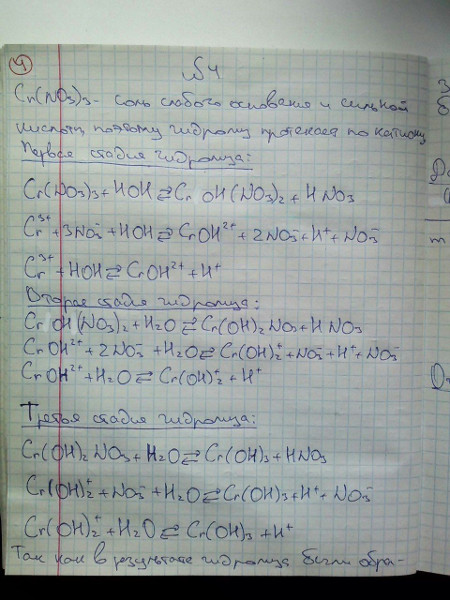 4
№4
Cr(NO₃)₃ - соль слабого основания и сильной
кислоты, поэтому гидролиз протекает по катиону
Первая стадия гидролиза:
Cr(NO₃)₃ + HOH ⇄ Cr OH(NO₃)₂ + HNO₃
Cr³⁺ + 3NO₃⁻ + HOH ⇄ CrOH²⁺ + 2NO₃⁻ + H⁺ + NO₃⁻
Cr³⁺ + HOH ⇄ CrOH²⁺ + H⁺
Вторая стадия гидролиза:
Cr OH(NO₃)₂ + H₂O ⇄ Cr(OH)₂NO₃ + HNO₃
CrOH²⁺ + 2NO₃⁻ + H₂O ⇄ Cr(OH)₂⁺ + NO₃⁻ + H⁺ + NO₃⁻
CrOH²⁺ + H₂O ⇄ Cr(OH)₂⁺ + H⁺
Третья стадия гидролиза:
Cr(OH)₂NO₃ + H₂O ⇄ Cr(OH)₃ + HNO₃
Cr(OH)₂⁺ + NO₃⁻ + H₂O ⇄ Cr(OH)₃ + H⁺ + NO₃⁻
Cr(OH)₂⁺ + H₂O ⇄ Cr(OH)₃ + H⁺
Так как в результате гидролиза были обра-